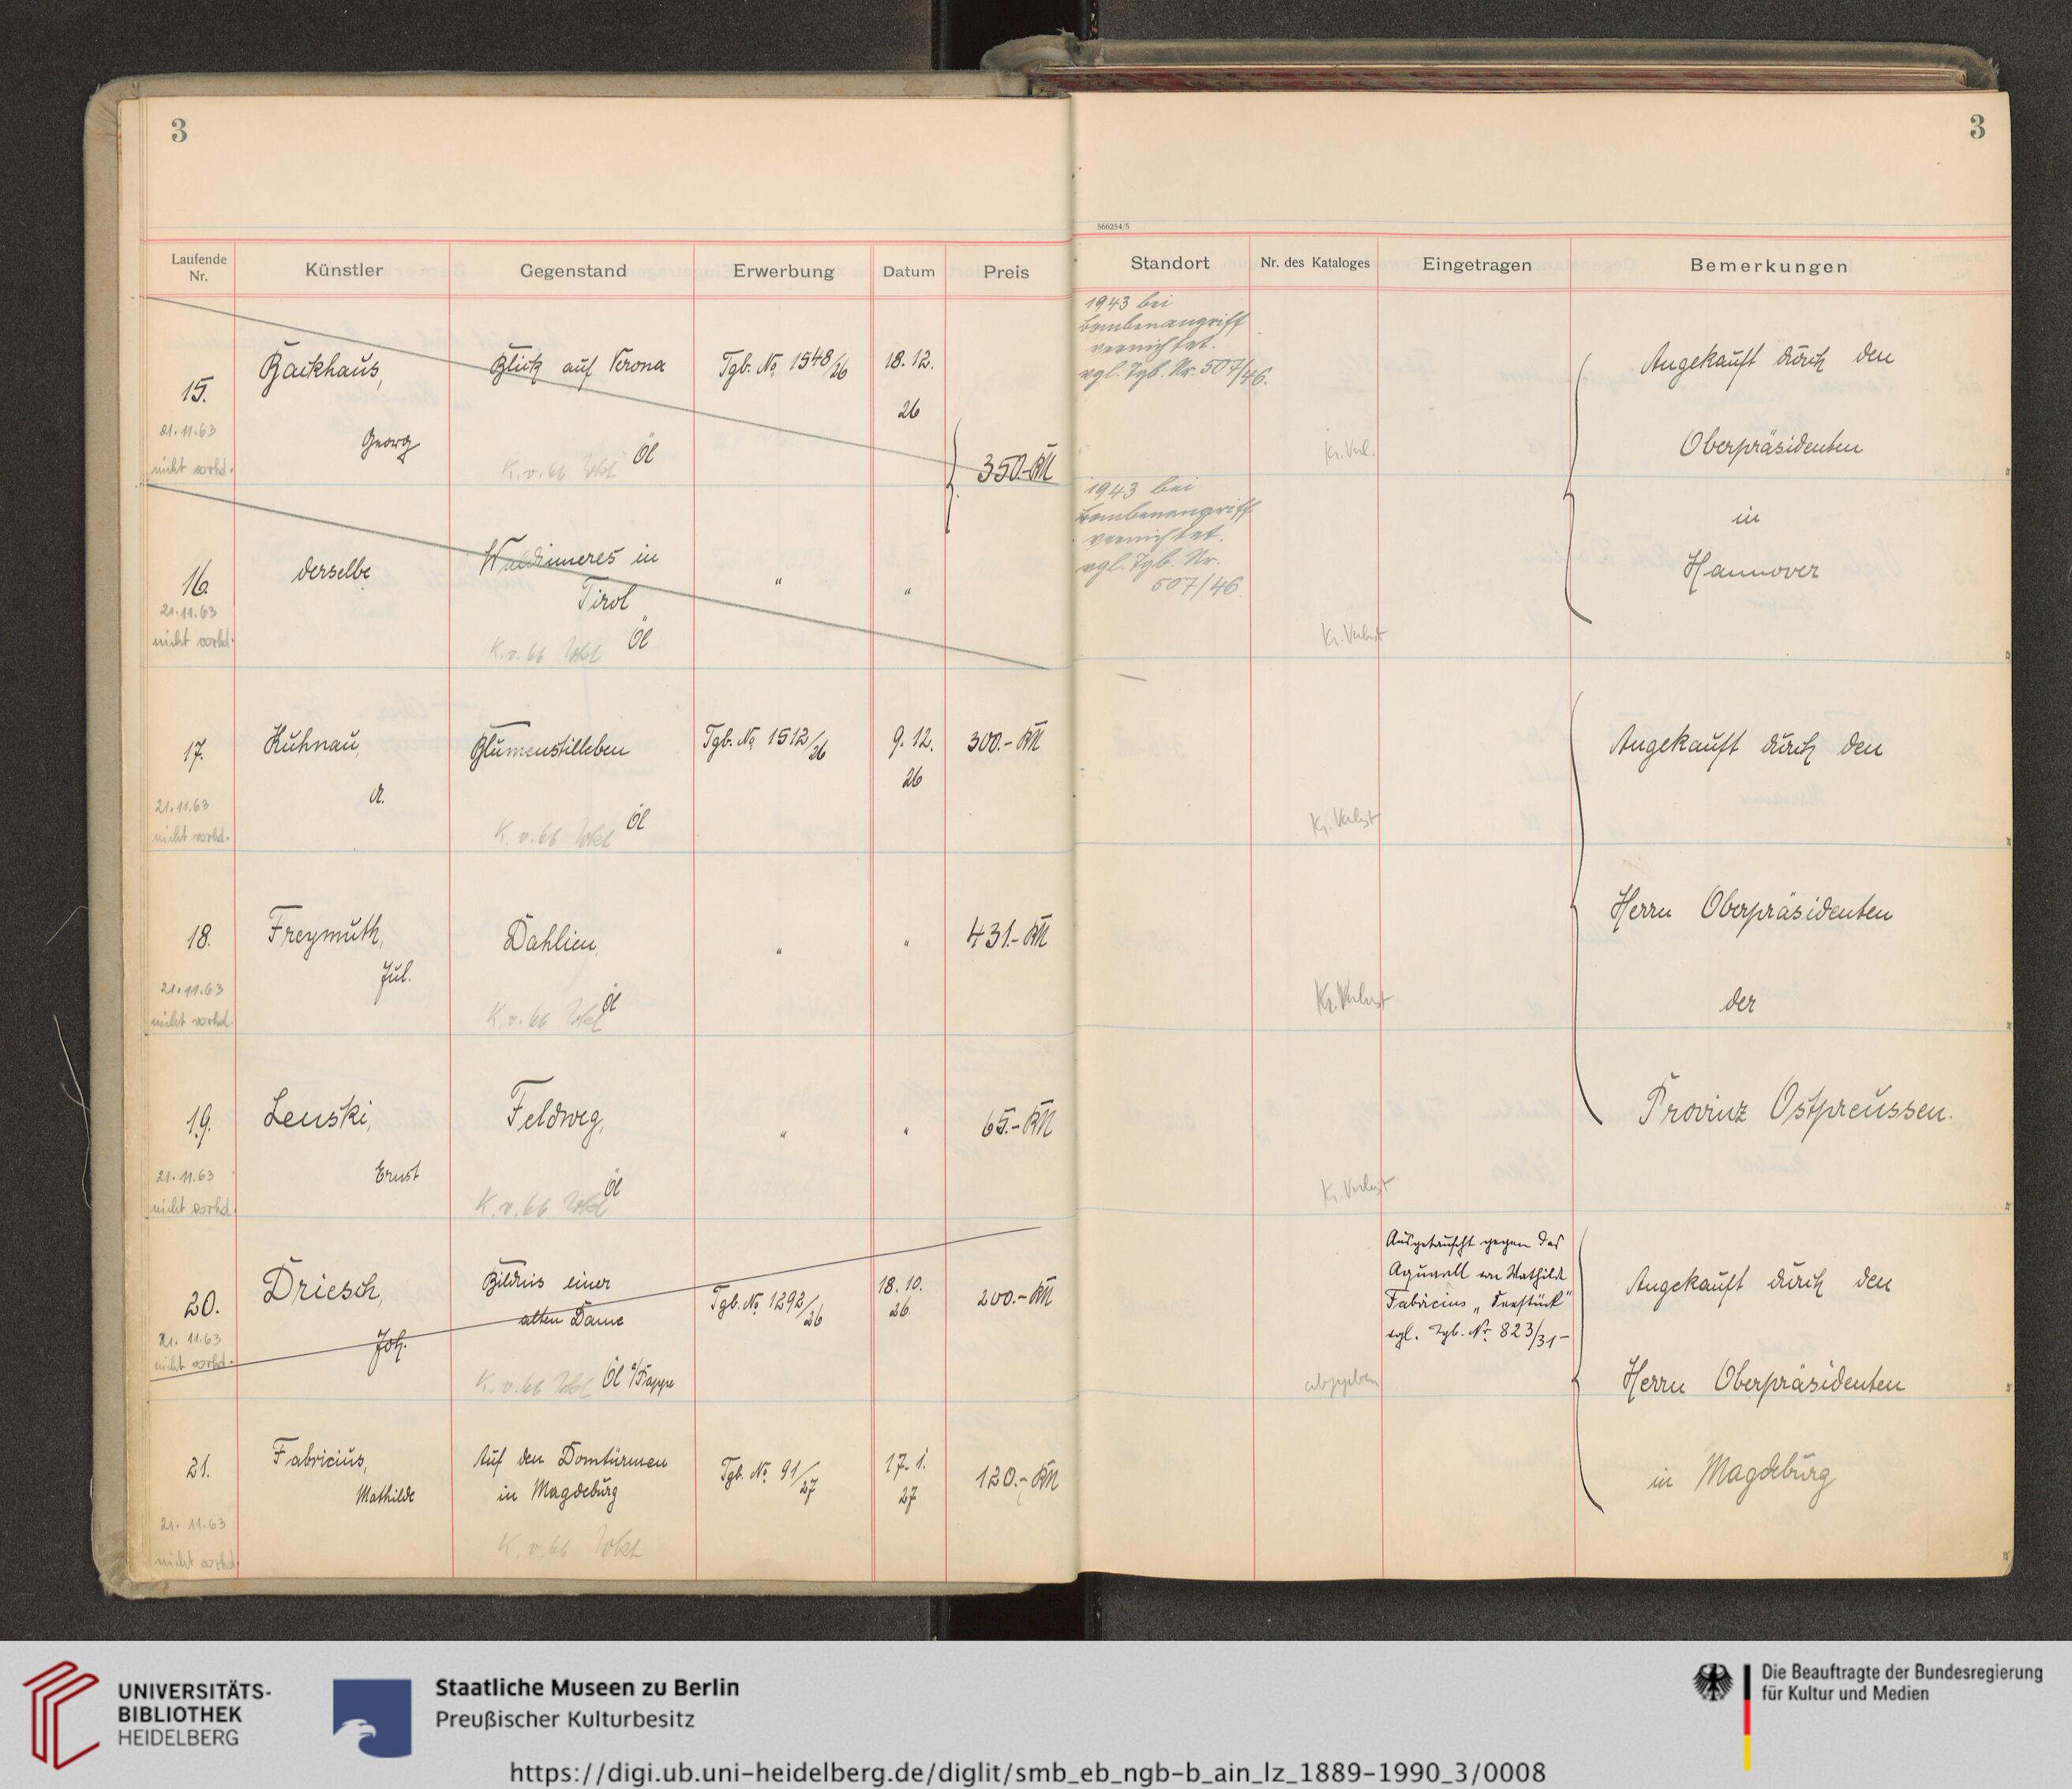 3
3
566254/5
Laufende
Nr.
Künstler
Gegenstand
Erwerbung
Datum
Preis
Standort
Nr. des Kataloges
Eingetragen
Bemerkungen
15.
21.11.63
nicht vorhd.
Backhaus,
Georg
Blick auf Verona
Öl
K.v.66
Tgb. No 1548/26
18.12.
26
350.-RM
1943 bei
Bombenangriff
vernichtet.
vgl. Tgb. Nr. 507/46.
Kr. Verl.
Angekauft durch den
Oberpräsidenten
in
Hannover
16.
21.11.63
nicht vorhd.
derselbe
Waldinneres in
Tirol
Öl
K.v.66
"
"
1943 bei
Bombenangriff
vernichtet.
vgl. Tgb. Nr.
507/46.
Kr. Verlust
17.
21.11.63
nicht vorhd.
Kuhnau,
A.
Blumenstilleben
Öl
K.v.66
Tgb. No 1512/26
9.12.
26
300.-RM
Kr. Verlust
Angekauft durch den
Herrn Oberpräsidenten
der
Provinz Ostpreussen.
18.
21.11.63
nicht vorhd.
Freymuth,
Jul.
Dahlien,
Öl
K.v.66
"
"
431.-RM
Kr. Verlust
19.
21.11.63
nicht vorhd.
Lenski,
Ernst
Feldweg,
Öl
K.v.66
"
"
65.-RM
Kr. Verlust
20.
21.11.63
nicht vorhd.
Driesch,
Joh.
Bildnis einer
alten Dame
Öl a/Pappe
K.v.66
Tgb. No 1292/26
18.10.
26.
200.-RM
abgegeben
Ausgetauscht gegen das
Aquarell von Mathilde
Fabricius „Seestück"
vgl. Tgb. Nr. 823/31-
Angekauft durch den
Herrn Oberpräsidenten
in Magdeburg
21.
21.11.63
nicht vorhd.
Fabricius,
Mathilde
Auf den Domtürmen
in Magdeburg
K.v.66
Tgb. No 91/27
17.1.
27
120.-RM
UNIVERSITÄTS-
BIBLIOTHEK
HEIDELBERG
Staatliche Museen zu Berlin
Preußischer Kulturbesitz
Die Beauftragte der Bundesregierung
für Kultur und Medien
https://digi.ub.uni-heidelberg.de/diglit/smb_eb_ngb-b_ain_lz_1889-1990_3/0008